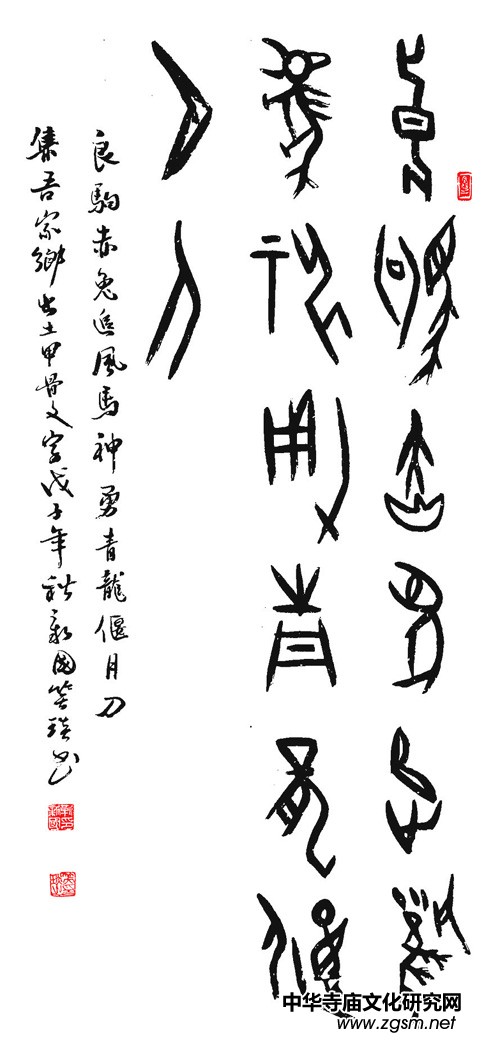 良駒赤兔追風
馬神勇青龍偃
月刀
良駒赤兔追風馬神勇青龍偃月刀
集吾家鄉出土甲骨文字戊子年秋國書
中华寺庙文化研究网
www.zgsm.net